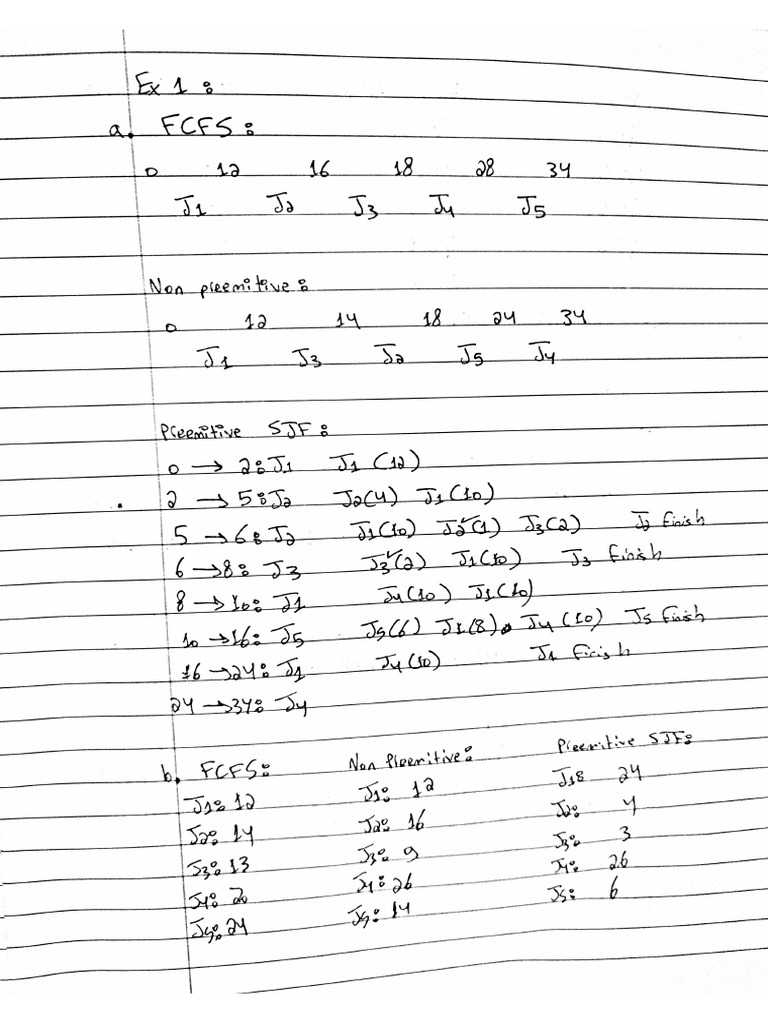 Ex 1 :
a. FCFS :
0 12 16 18 28 34
J1 J2 J3 J4 J5
Non preemitive :
0 12 14 18 24 34
J1 J3 J2 J5 J4
Preemitive SJF :
0 → 2 : J1 J1 (12)
2 → 5 : J2 J2(4) J1(10)
5 → 6 : J2 J1(10) J2✓(1) J3(2) J2 finish
6 → 8 : J3 J3✓(2) J1(10) J3 finish
8 → 10 : J1 J4(10) J1(10)
10 → 16 : J5 J5(6) J1(8) J4(10) J5 finish
16 → 24 : J1 J4(10) J1 finish
24 → 34 : J4
b. FCFS : Non Preemitive : Preemitive SJF :
J1 : 12 J1 : 12 J1 : 24
J2 : 14 J2 : 16 J2 : 4
J3 : 13 J3 : 9 J3 : 3
J4 : 20 J4 : 26 J4 : 26
J5 : 24 J5 : 14 J5 : 6